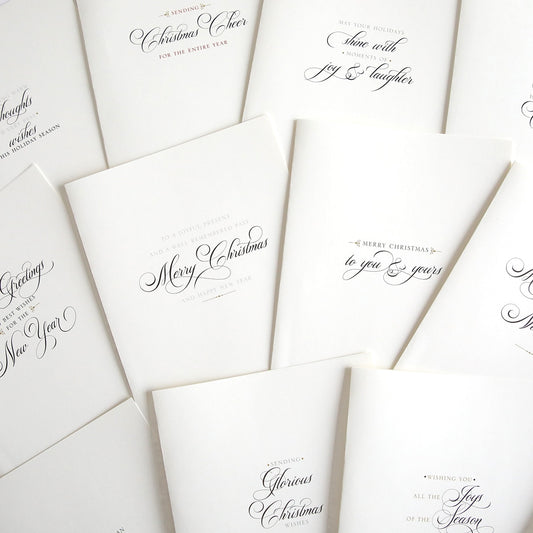 SENDING
Christmas Cheer
FOR THE ENTIRE YEAR
MAY YOUR HOLIDAYS
shine with
MOMENTS OF
joy & laughter
thoughts
wishes
THIS HOLIDAY SEASON
TO A JOYFUL PRESENT
AND A WELL REMEMBERED PAST
Merry Christmas
AND HAPPY NEW YEAR
MERRY CHRISTMAS
to you & yours
Greetings
BEST WISHES
FOR THE
New Year
SENDING
Glorious
Christmas
WISHES
WISHING YOU
ALL THE Joys
OF THE Season